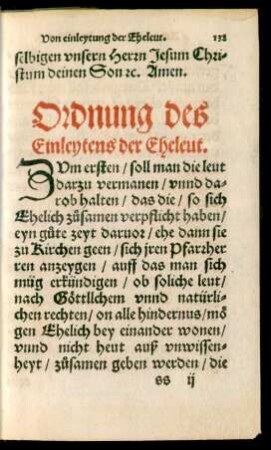 Von einleytung der Eheleut. 138
selbigen vnsern Herrn Jesum Chri-
stum deinen Son ꝛc. Amen.
Ordnung des
Einleytens der Eheleut.
ZVm ersten / soll man die leut
darzu vermanen / vnnd da-
rob halten / das die / so sich
Ehelich zůsamen verpflicht haben /
eyn gůte zeyt daruor / ehe dann sie
zu Kirchen geen / sich jren Pfarzher
ren anzeygen / auff das man sich
müg erkündigen / ob soliche leut /
nach Göttlichem vnnd natürli-
chen rechten / on alle hindernus / mö
gen Ehelich bey einander wonen /
vnnd nicht heut auß vnwissen-
heyt / zůsamen geben werden / die
ss ij